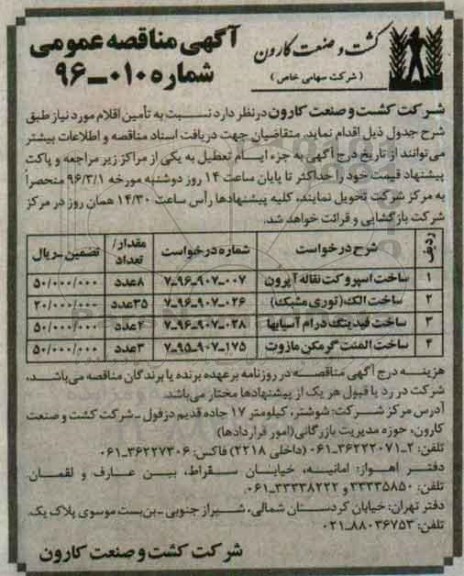 آگهی مناقصه عمومی
شماره ۰۱۰-۹۶
کشت و صنعت کارون
(شرکت سهامی خاص)
شرکت کشت و صنعت کارون در نظر دارد نسبت به تأمین اقلام مورد نیاز طبق
شرح جدول ذیل اقدام نماید. متقاضیان جهت دریافت اسناد مناقصه و اطلاعات بیشتر
می‌توانند از تاریخ درج آگهی به جزء ایام تعطیل به یکی از مراکز زیر مراجعه و پاکت
پیشنهاد قیمت خود را حداکثر تا پایان ساعت ۱۴ روز دوشنبه مورخه ۹۶/۳/۱ منحصراً
به مرکز شرکت تحویل نمایند، کلیه پیشنهادها رأس ساعت ۱۴/۳۰ همان روز در مرکز
شرکت بازگشایی و قرائت خواهد شد.
ردیف | شرح درخواست | شماره درخواست | مقدار/تعداد | تضمین-ریال
۱ | ساخت اسپروکت نقاله آپرون | ۷-۹۶-۹۰۷-۰۰۷ | ۸عدد | ۵۰/۰۰۰/۰۰۰
۲ | ساخت الک(توری مشبک) | ۷-۹۶-۹۰۷-۰۲۶ | ۳۵عدد | ۲۰/۰۰۰/۰۰۰
۳ | ساخت فیدینگ درام آسیابها | ۷-۹۶-۹۰۷-۰۲۸ | ۲عدد | ۵۰/۰۰۰/۰۰۰
۴ | ساخت المنت گرمکن مازوت | ۷-۹۵-۹۰۷-۱۷۵ | ۳عدد | ۵۰/۰۰۰/۰۰۰
هزینه درج آگهی مناقصه در روزنامه بر عهده برنده یا برندگان مناقصه می‌باشد،
شرکت در رد یا قبول هر یک از پیشنهادها مختار می‌باشد.
آدرس مرکز شرکت: شوشتر، کیلومتر ۱۷ جاده قدیم دزفول - شرکت کشت و صنعت
کارون، حوزه مدیریت بازرگانی(امور قراردادها)
تلفن: ۲-۳۶۲۲۲۰۷۱-۰۶۱ (داخلی ۲۲۱۸) فاکس: ۳۶۲۲۷۳۰۶-۰۶۱
دفتر اهواز: امانیه، خیابان سقراط، بین عارف و لقمان
تلفن: ۳۳۳۳۵۸۵۰ و ۳۳۳۳۸۲۲۲-۰۶۱
دفتر تهران: خیابان کردستان شمالی، شیراز جنوبی - بن‌بست موسوی پلاک یک.
تلفن: ۸۸۰۳۶۷۵۳-۰۲۱
شرکت کشت و صنعت کارون